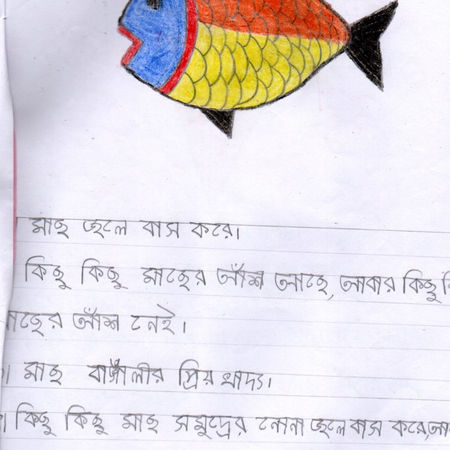 মাছ জলে বাস করে।
কিছু কিছু মাছের আঁশ আছে, আবার কিছু
মাছের আঁশ নেই।
মাছ বাঙ্গালীর প্রিয় খাদ্য।
কিছু কিছু মাছ সমুদ্রের নোনা জলে বাস করে,